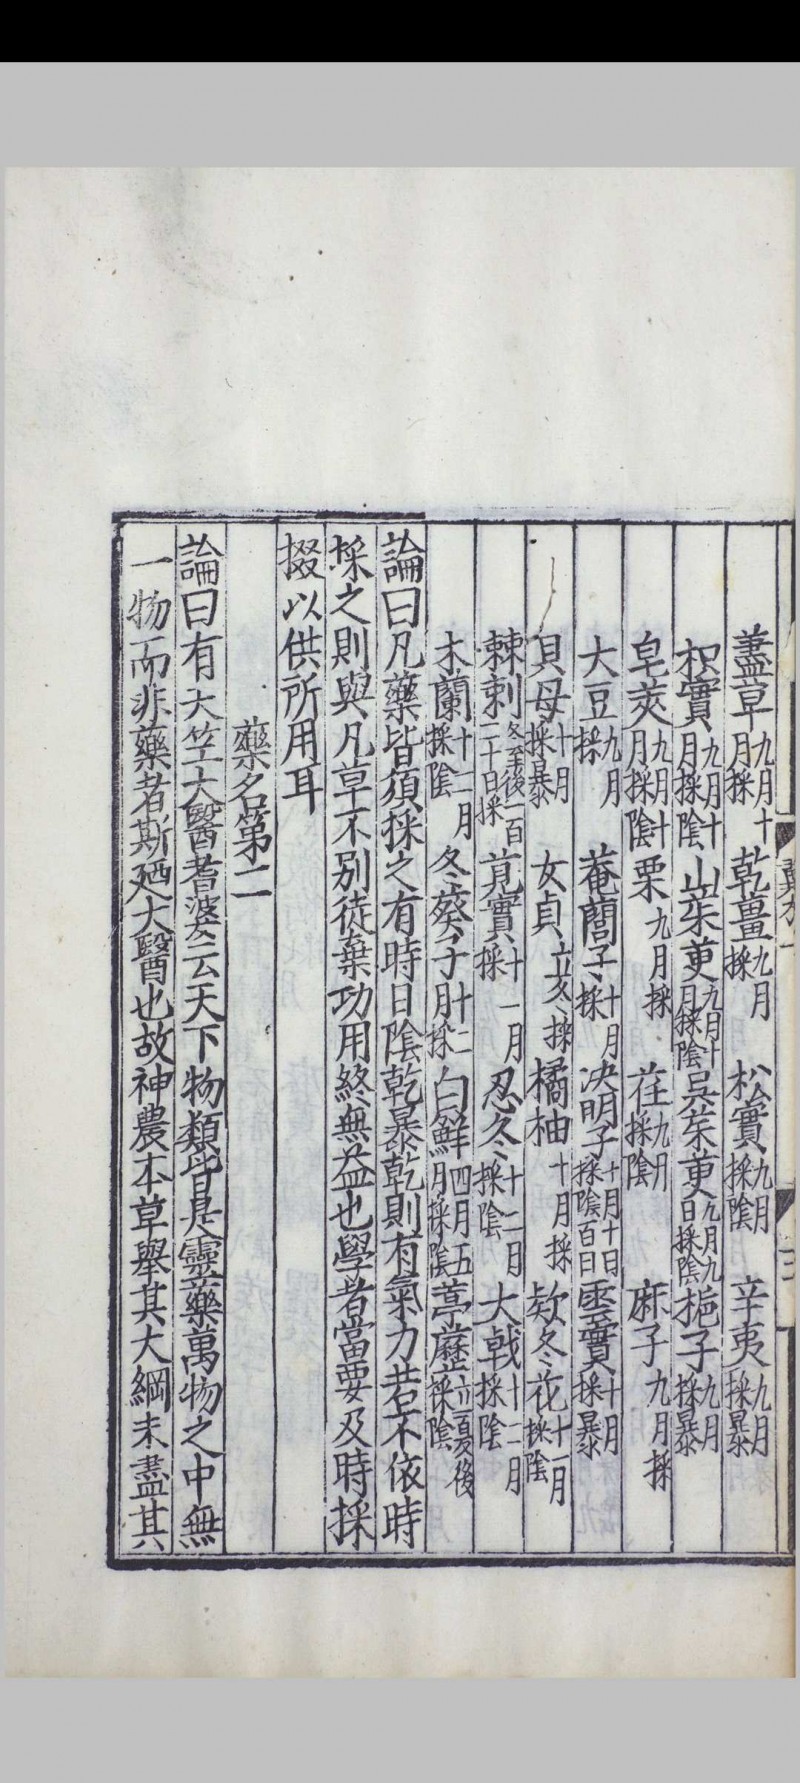 藎草九月十月採　乾薑九月採　松實九月採陰　辛夷九月採暴
枳實九月十月採陰　山茱萸九月十月採陰　吳茱萸九月九日採陰　梔子九月採暴
皂莢九月十月採陰　栗九月採　荏九月採陰　麻子九月採
大豆九月採　菴䕡子十月採　决明子十月十日採陰百日　雲實十月採暴
貝母十月採暴　女貞立冬採　橘柚十月採　欵冬花十一月採陰
棘刺冬至後一百二十日採　莧實十一月採　忍冬十二月採陰　大戟十二月採陰
木蘭十二月採陰　冬葵子十二月採　白鮮四月五月採陰　葶藶立夏後採陰
論曰凡藥皆須採之有時日陰乾暴乾則有氣力若不依時
採之則與凡草不别徒棄功用終無益也學者當要及時採
掇以供所用耳
藥名第二
論曰有天竺大醫耆婆云天下物類皆是靈藥萬物之中無
一物而非藥者斯廼大醫也故神農本草舉其大綱未盡其